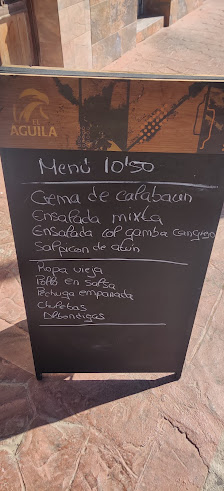 EL
AGUILA
Menú 10'50
Crema de calabacin
Ensalada mixta
Ensalada col gamba cangrejo
Salpicon de atún
Ropa vieja
Pollo en salsa
Pechuga empanada
Chuletas
Albondigas